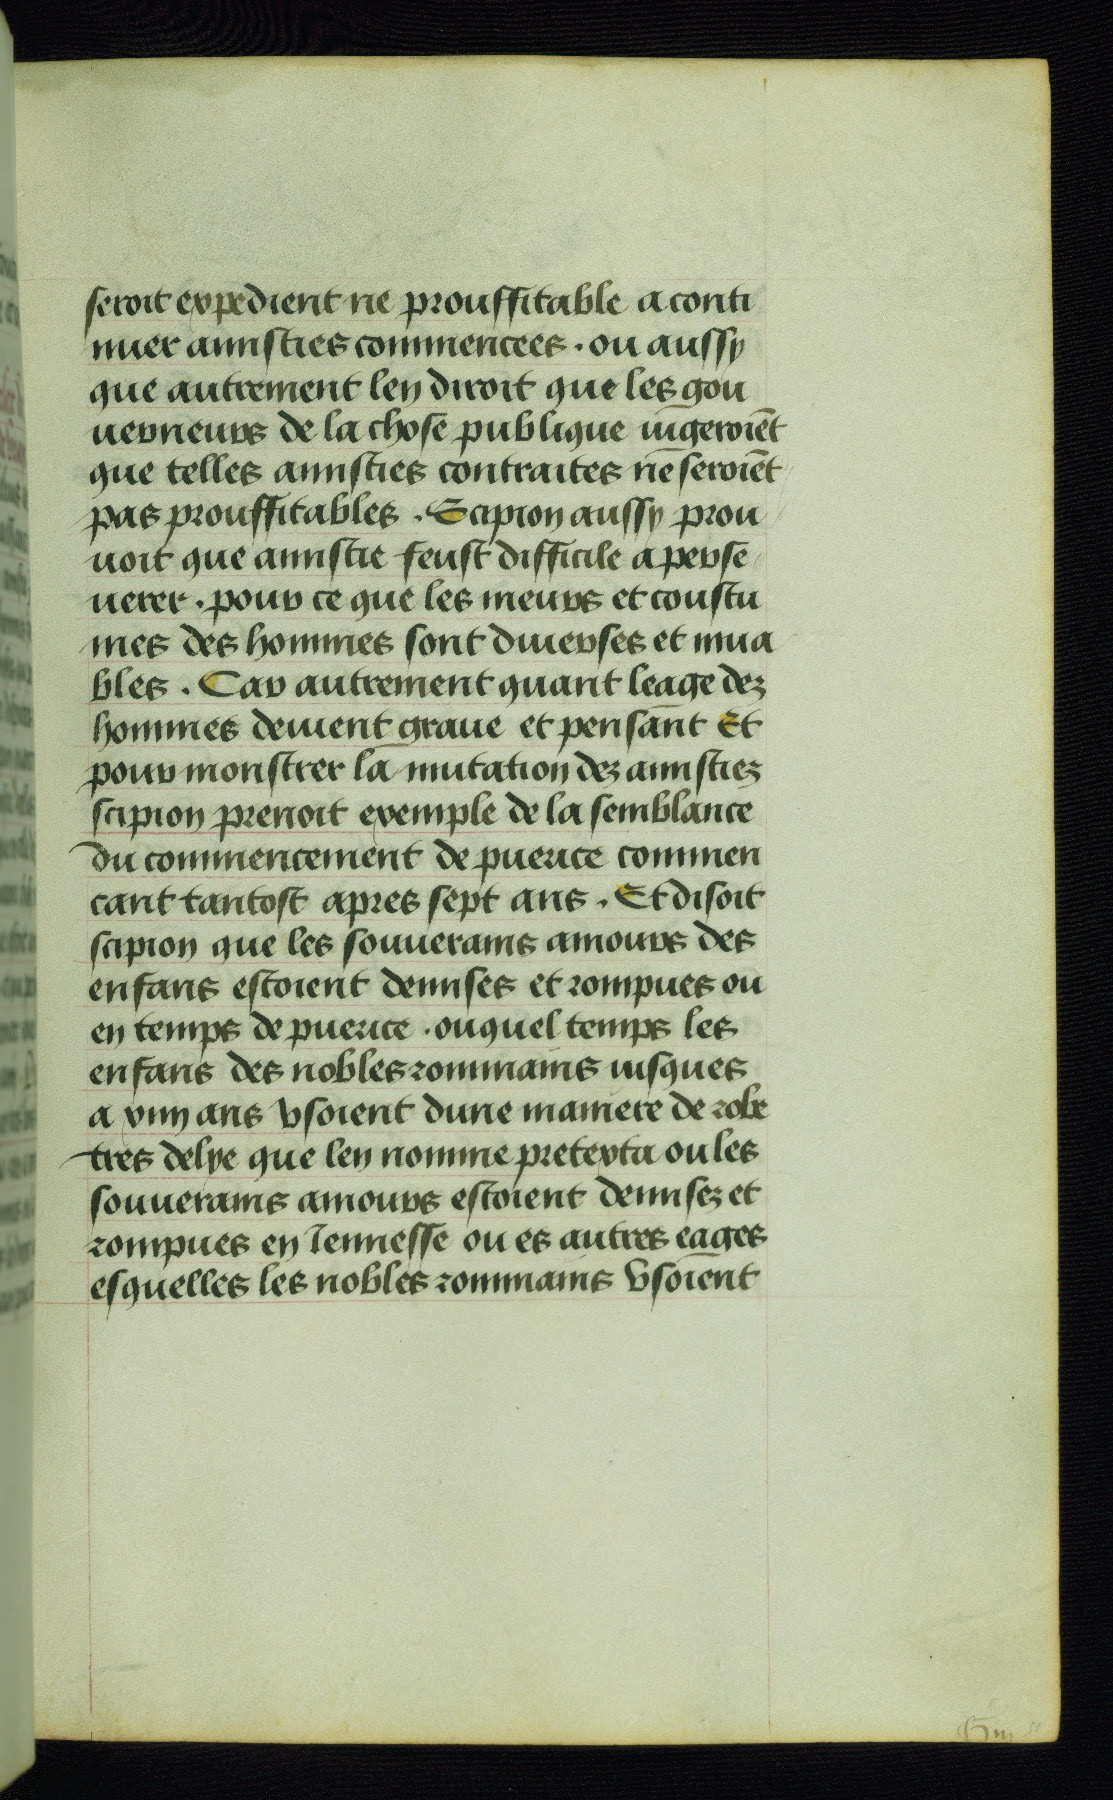 seroit expedient ne prouffitable a conti
nuer amisties commencees . ou aussy
que autrement len diroit que les gou
verneurs de la chose publique iugeroiẽt
que telles amisties contraites ne seroiẽt
pas prouffitables . Scipion aussy prou
uoit que amistie feust difficile a perse
uerer . pour ce que les meurs et coustu
mes des hommes sont diuerses et mua
bles . Car autrement quant leage dez
hommes deuient graue et pensant Et
pour monstrer la mutation dez amistiez
scipion prenoit exemple de la semblance
du commencement de puerice commen
cant tantost apres sept ans . Et disoit
scipion que les souuerains amours des
enfans estoient demises et rompues ou
en temps de puerice . ouquel temps les
enfans des nobles rommains iusques
a xiiij ans vsoient dune maniere de robe
tres delye que len nomme pretexta ou les
souuerains amours estoient demisez et
rompues en Iennesse ou es autres eages
esquelles les nobles rommains vsoient